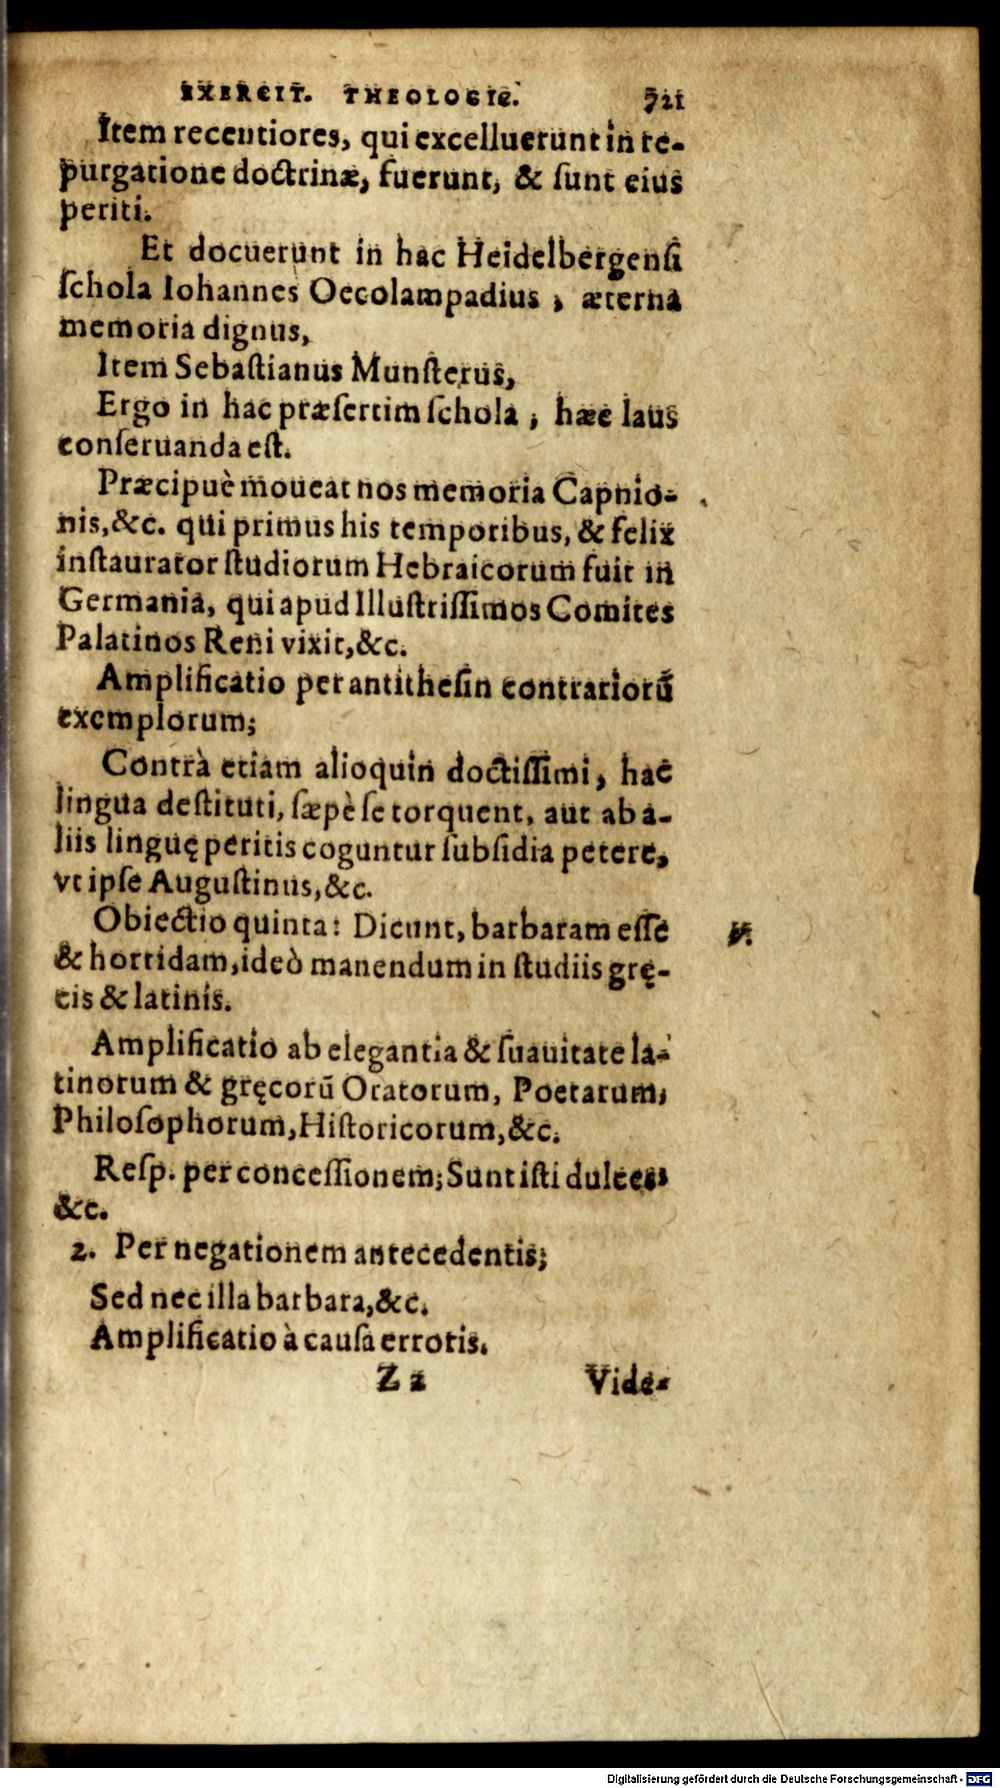 EXERCIT. THEOLOGIC. 721
Item recentiores, qui excelluerunt in re-
purgatione doctrinæ, fuerunt, & sunt eius
periti.
Et docuerunt in hac Heidelbergensi
schola Iohannes Oecolampadius, æterna
memoria dignus,
Item Sebastianus Munsterus,
Ergo in hac præsertim schola, hæc laus
conseruanda est.
Præcipuè moueat nos memoria Capnio-
nis, &c. qui primus his temporibus, & felix
instaurator studiorum Hebraicorum fuit in
Germania, qui apud Illustrissimos Comites
Palatinos Reni vixit, &c.
Amplificatio per antithesin contrariorũ
exemplorum;
Contrà etiam alioquin doctissimi, hac
lingua destituti, sæpè se torquent, aut ab a-
liis linguę peritis coguntur subsidia petere,
vt ipse Augustinus, &c.
Obiectio quinta: Dicunt, barbaram esse
& horridam, ideò manendum in studiis grę-
cis & latinis.
Amplificatio ab elegantia & suauitate la-
tinorum & gręcorũ Oratorum, Poetarum,
Philosophorum, Historicorum, &c.
Resp. per concessionem; Sunt isti dulces,
&c.
2. Per negationem antecedentis;
Sed nec illa barbara, &c.
Amplificatio à causa erroris.
Z z Vide-
Digitalisierung gefördert durch die Deutsche Forschungsgemeinschaft - DFG